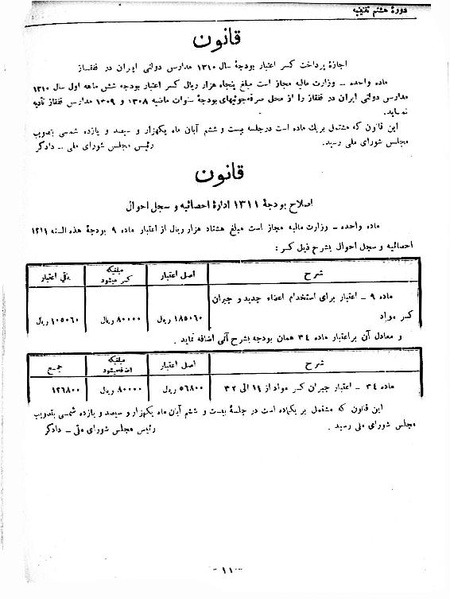 دورهٔ هشتم تقنینیه
قانون
اجازهٔ پرداخت کسر اعتبار بودجهٔ سال ۱۳۱۰ مدارس دولتی ایران در قفقاز
ماده واحده – وزارت مالیه مجاز است مبلغ پنجاه هزار ریال کسر اعتبار بودجه شش ماهه اول سال ۱۳۱۰
مدارس دولتی ایران در قفقاز را از محل صرفه‌جوئیهای بودجهٔ سنوات ماضیه ۱۳۰۸ و ۱۳۰۹ مدارس قفقاز تادیه
نماید.
این قانون که مشتمل بر یک ماده است در جلسه بیست و ششم آبان ماه یکهزار و سیصد و یازده شمسی بتصویب
مجلس شورای ملی رسید. رئیس مجلس شورای ملی – دادگر
قانون
اصلاح بودجهٔ ۱۳۱۱ ادارهٔ احصائیه و سجل احوال
ماده واحده – وزارت مالیه مجاز است مبلغ هشتاد هزار ریال از اعتبار ماده ۹ بودجهٔ هذه السنه ۱۳۱۱
احصائیه و سجل احوال بشرح ذیل کسر:
شرح اصل اعتبار مبلغیکه کسر میشود باقی اعتبار
ماده ۹ – اعتبار برای استخدام اعضاء جدید و جبران
کسر مواد ۱۸۵۰۶۰ ریال ۸۰۰۰۰ ریال ۱۰۵۰۶۰ ریال
و معادل آن بر اعتبار ماده ۳۴ همان بودجه بشرح آتی اضافه نماید
شرح اصل اعتبار مبلغیکه اضافه میشود جمع
ماده ۳۴ – اعتبار جبران کسر مواد از ۱۹ الی ۳۲ ۵۶۸۰۰ ریال ۸۰۰۰۰ ریال ۱۳۶۸۰۰
این قانون که مشتمل بر یکماده است در جلسهٔ بیست و ششم آبان ماه یکهزار و سیصد و یازده شمسی بتصویب
مجلس شورای ملی رسید. رئیس مجلس شورای ملی – دادگر
– ۱۱ –